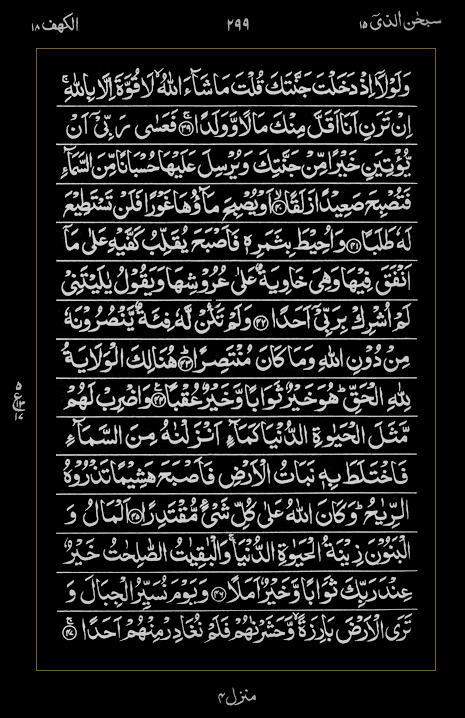 سبحٰن الذیٓ ۱۵
۲۹۹
الکهف ۱۸
وَلَوْلَاۤ اِذْ دَخَلْتَ جَنَّتَكَ قُلْتَ مَا شَآءَ اللّٰهُ ۙ لَا قُوَّةَ اِلَّا بِاللّٰهِ ۚ
اِنْ تَرَنِ اَنَا اَقَلَّ مِنْكَ مَالًا وَّوَلَدًا ۚ‏﴿۳۹﴾ فَعَسٰى رَبِّىْۤ اَنْ
يُّؤْتِيَنِ خَيْرًا مِّنْ جَنَّتِكَ وَيُرْسِلَ عَلَيْهَا حُسْبَانًا مِّنَ السَّمَآءِ
فَتُصْبِحَ صَعِيْدًا زَلَقًا ۙ‏﴿۴۰﴾ اَوْ يُصْبِحَ مَآؤُهَا غَوْرًا فَلَنْ تَسْتَطِيْعَ
لَهٗ طَلَبًا‏﴿۴۱﴾ وَاُحِيْطَ بِثَمَرِهٖ فَاَصْبَحَ يُقَلِّبُ كَفَّيْهِ عَلٰى مَاۤ
اَنْفَقَ فِيْهَا وَهِىَ خَاوِيَةٌ عَلٰى عُرُوْشِهَا وَيَقُوْلُ يٰلَيْتَنِىْ
لَمْ اُشْرِكْ بِرَبِّىْۤ اَحَدًا‏﴿۴۲﴾ وَلَمْ تَكُنْ لَّهٗ فِئَةٌ يَّنْصُرُوْنَهٗ
مِنْ دُوْنِ اللّٰهِ وَمَا كَانَ مُنْتَصِرًا ؕ‏﴿۴۳﴾ هُنَالِكَ الْوَلَايَةُ
لِلّٰهِ الْحَقِّ ؕ هُوَ خَيْرٌ ثَوَابًا وَّخَيْرٌ عُقْبًا‏﴿۴۴﴾ وَاضْرِبْ لَهُمْ
مَّثَلَ الْحَيٰوةِ الدُّنْيَا كَمَآءٍ اَنْزَلْنٰهُ مِنَ السَّمَآءِ
فَاخْتَلَطَ بِهٖ نَبَاتُ الْاَرْضِ فَاَصْبَحَ هَشِيْمًا تَذْرُوْهُ
الرِّيٰحُ ؕ وَكَانَ اللّٰهُ عَلٰى كُلِّ شَىْءٍ مُّقْتَدِرًا‏﴿۴۵﴾ اَلْمَالُ وَ
الْبَنُوْنَ زِيْنَةُ الْحَيٰوةِ الدُّنْيَا ۚ وَالْبٰقِيٰتُ الصّٰلِحٰتُ خَيْرٌ
عِنْدَ رَبِّكَ ثَوَابًا وَّخَيْرٌ اَمَلًا‏﴿۴۶﴾ وَيَوْمَ نُسَيِّرُ الْجِبَالَ وَ
تَرَى الْاَرْضَ بَارِزَةً ۙ وَّحَشَرْنٰهُمْ فَلَمْ نُغَادِرْ مِنْهُمْ اَحَدًا ۚ‏﴿۴۷﴾
۵
ع ۱۳
۱۷
منزل ۴